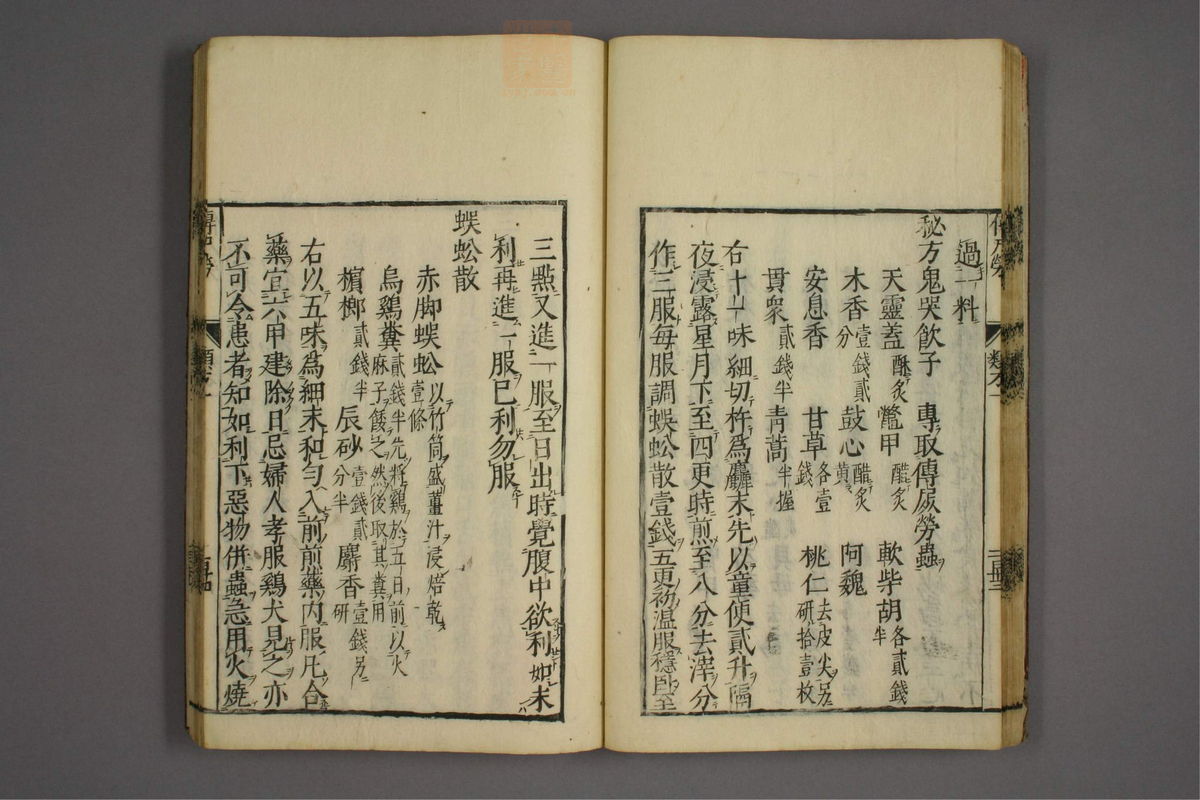 過一料
秘方鬼哭飲子　專取傳屍勞蟲
天靈蓋酥炙　鱉甲醋炙　軟柴胡各貳錢半
木香壹錢貳分　鼓心醋炙黃　阿魏
安息香　甘草各壹錢　桃仁去皮尖另研拾壹枚
貫衆貳錢半　青蒿半握
右十一味細切杵爲麤末先以童便貳升隔
夜浸露星月下至四更時煎至八分去滓分
作三服每服調蜈蚣散壹錢五更初溫服穩臥至
三點又進一服至日出時覺腹中欲利如未
利再進一服已利勿服
蜈蚣散
赤脚蜈蚣壹條以竹筒盛薑汁浸焙乾
烏鷄糞貳錢半先將鷄於五日前以火麻子餧之然後取其糞用
檳榔貳錢半　辰砂壹錢貳分半　麝香壹錢另研
右以五味爲細末和勻入前煎藥內服凡合
藥宜六甲建除日忌婦人孝服鷄犬見之亦
不可令患者知如利下惡物併蟲急用火燒